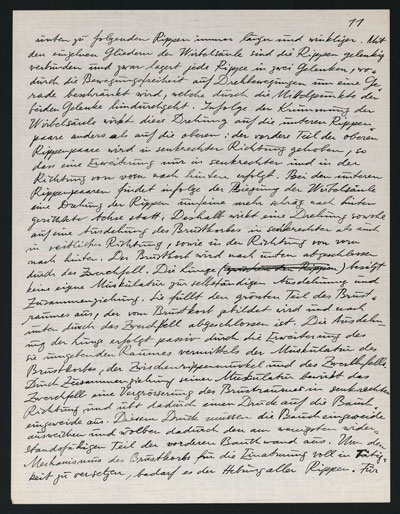 11
unten zu folgenden Rippen immer länger und winkliger. Mit
den einzelnen Gliedern der Wirbelsäule sind die Rippen gelenkig
verbunden und zwar lagert jede Rippe in zwei Gelenken, wo-
durch die Bewegungsfreiheit auf Drehbewegungen um eine Ge-
rade beschränkt wird, welche durch die Mittelpunkte der
beiden Gelenke hindurchgeht. Infolge der Krümmung der
Wirbelsäule wirkt diese Drehung auf die unteren Rippen-
paare anders als auf die oberen: der vordere Teil der oberen
Rippenpaare wird in senkrechter Richtung gehoben, so
dass eine Erweiterung nur in senkrechter und in der
Richtung von vorn nach hinten erfolgt. Bei den unteren
Rippenpaaren findet infolge der Biegung der Wirbelsäule
eine Drehung der Rippen um eine mehr schräg nach hinten
gerichtete Achse statt. Deshalb wirkt eine Drehung sowohl
auf eine Ausdehnung des Brustkorbes in senkrechter als auch
in seitlicher Richtung, sowie in der Richtung von vorn
nach hinten. Der Brustkorb wird nach unten abgeschlossen
durch das Zwerchfell. Die Lunge (zwischen den Rippen) besitzt
keine eigene Muskulatur zur selbständigen Ausdehnung und
Zusammenziehung. Sie füllt den grössten Teil des Brust-
raumes aus, der vom Brustkorb gebildet wird und nach
unten durch das Zwerchfell abgeschlossen ist. Die Ausdeh-
nung der Lunge erfolgt passiv durch die Erweiterung des
sie umgebenden Raumes vermittels der Muskulatur des
Brustkorbes, der Zwischenrippenmuskel und des Zwerchfells.
Durch Zusammenziehung seiner Muskulatur bewirkt das
Zwerchfell eine Vergrösserung des Brustraumes in senkrechter
Richtung und übt dadurch einen Druck auf die Bauch-
eingeweide aus. Diesem Druck müssen die Baucheingeweide
ausweichen und wölben dadurch den am wenigsten wider-
standsfähigen Teil der vorderen Bauchwand aus. Um den
Mechanismus des Brustkorbs für die Einatmung voll in Tätig-
keit zu versetzen, bedarf es der Hebung aller Rippen. Für